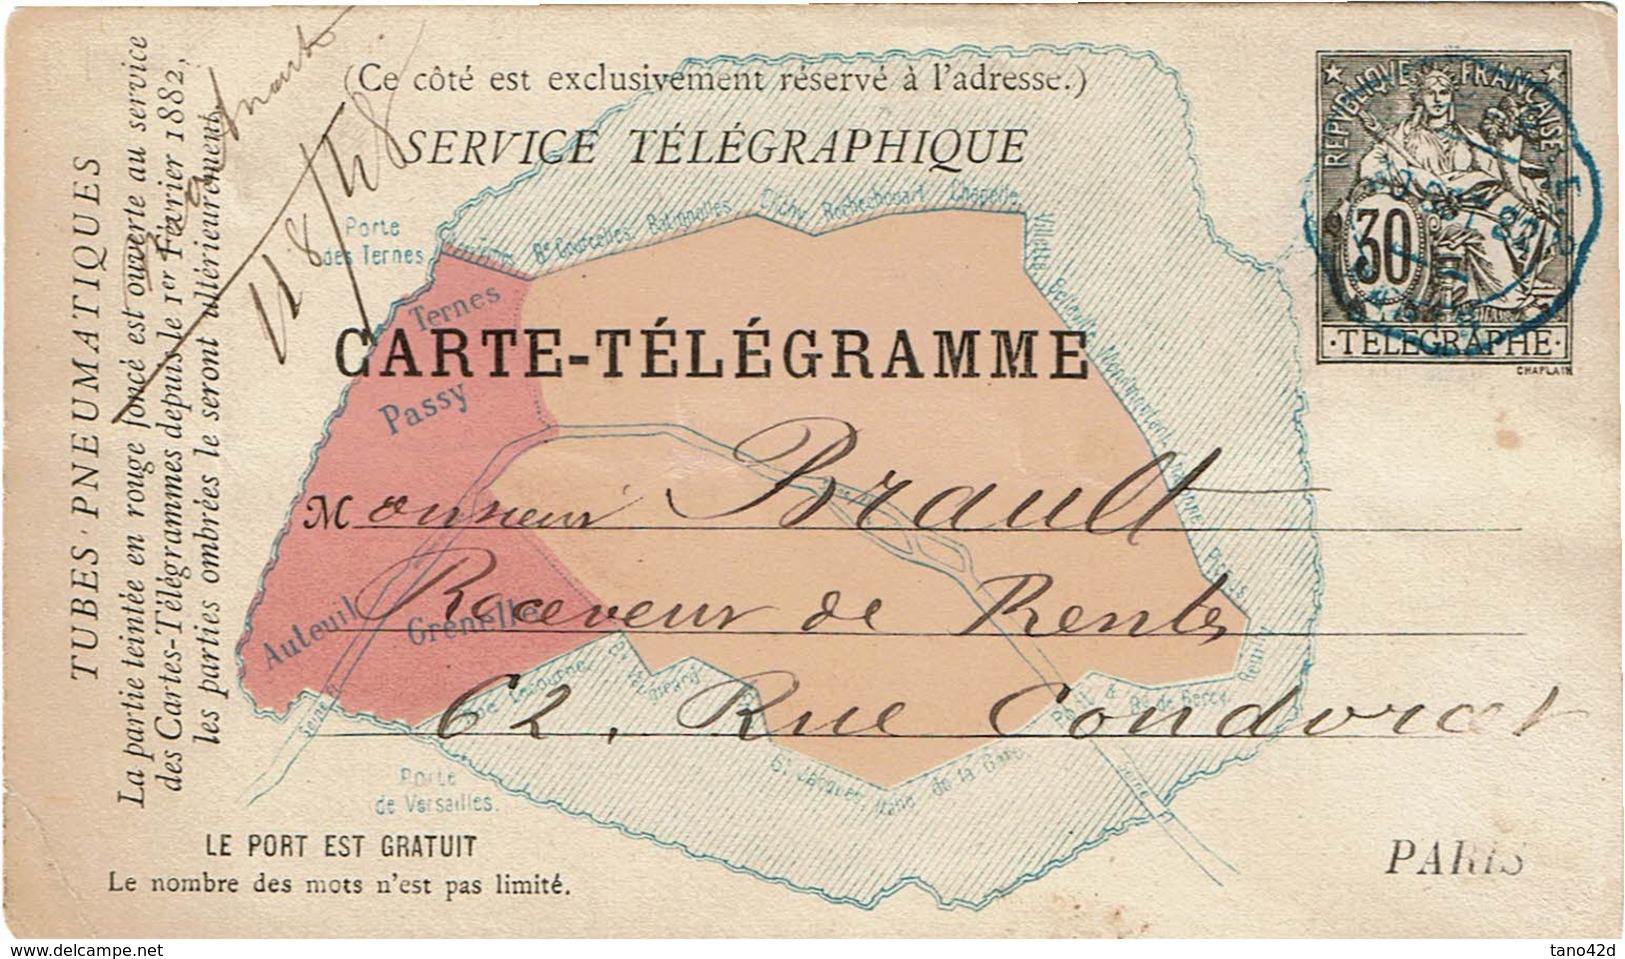 (Ce côté est exclusivement réservé à l'adresse.)
SERVICE TÉLÉGRAPHIQUE
CARTE-TÉLÉGRAMME
REPVBLIQVE FRANCAISE
30
TELEGRAPHE
CHAPLAIN
TUBES-PNEUMATIQUES
La partie teintée en rouge foncé est ouverte au service
des Cartes-Télégrammes depuis le 1er Février 1882,
les parties ombrées le seront ultérieurement.
Porte
des Ternes
Bd Courcelles Batignolles Clichy Rochechouart Chapelle
Villette Belleville Ménilmontant
Ternes
Passy
Auteuil
Grenelle
Monsieur Brault
Receveur de Rentes
62, Rue Condorcet
Seine
Lecourbe
Bd Vaugirard
St Jacques Italie de la Gare
Bd de Bercy
Reuilly
Seine
Porte
de Versailles.
LE PORT EST GRATUIT
Le nombre des mots n'est pas limité.
PARIS
www.delcampe.net
tano42d